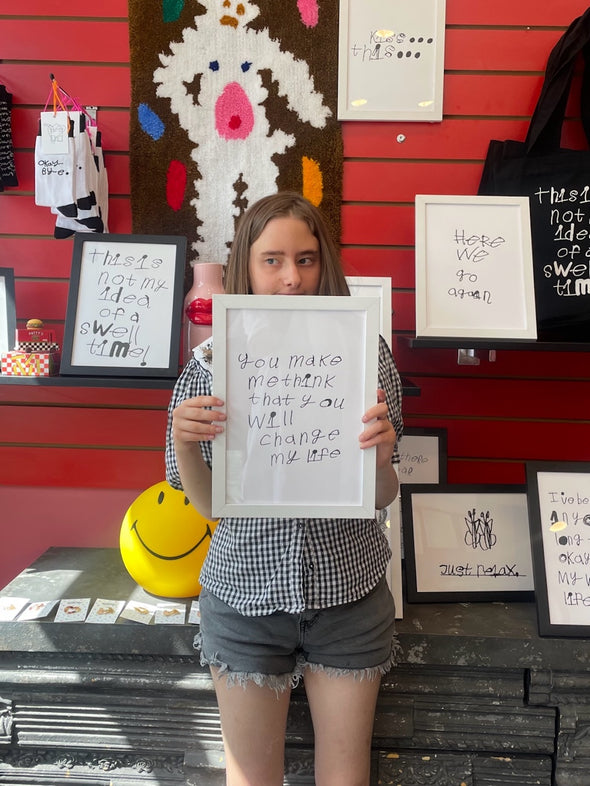 Kiss
this
okay
By-e.
this is
not my
idea
of a
swell
time!
Here
We
go
again
this is
not
idea
of a
swell
time
you make
me think
that you
Will
change
my life
Just relax.
I've be
Any
long
okay
my w
life